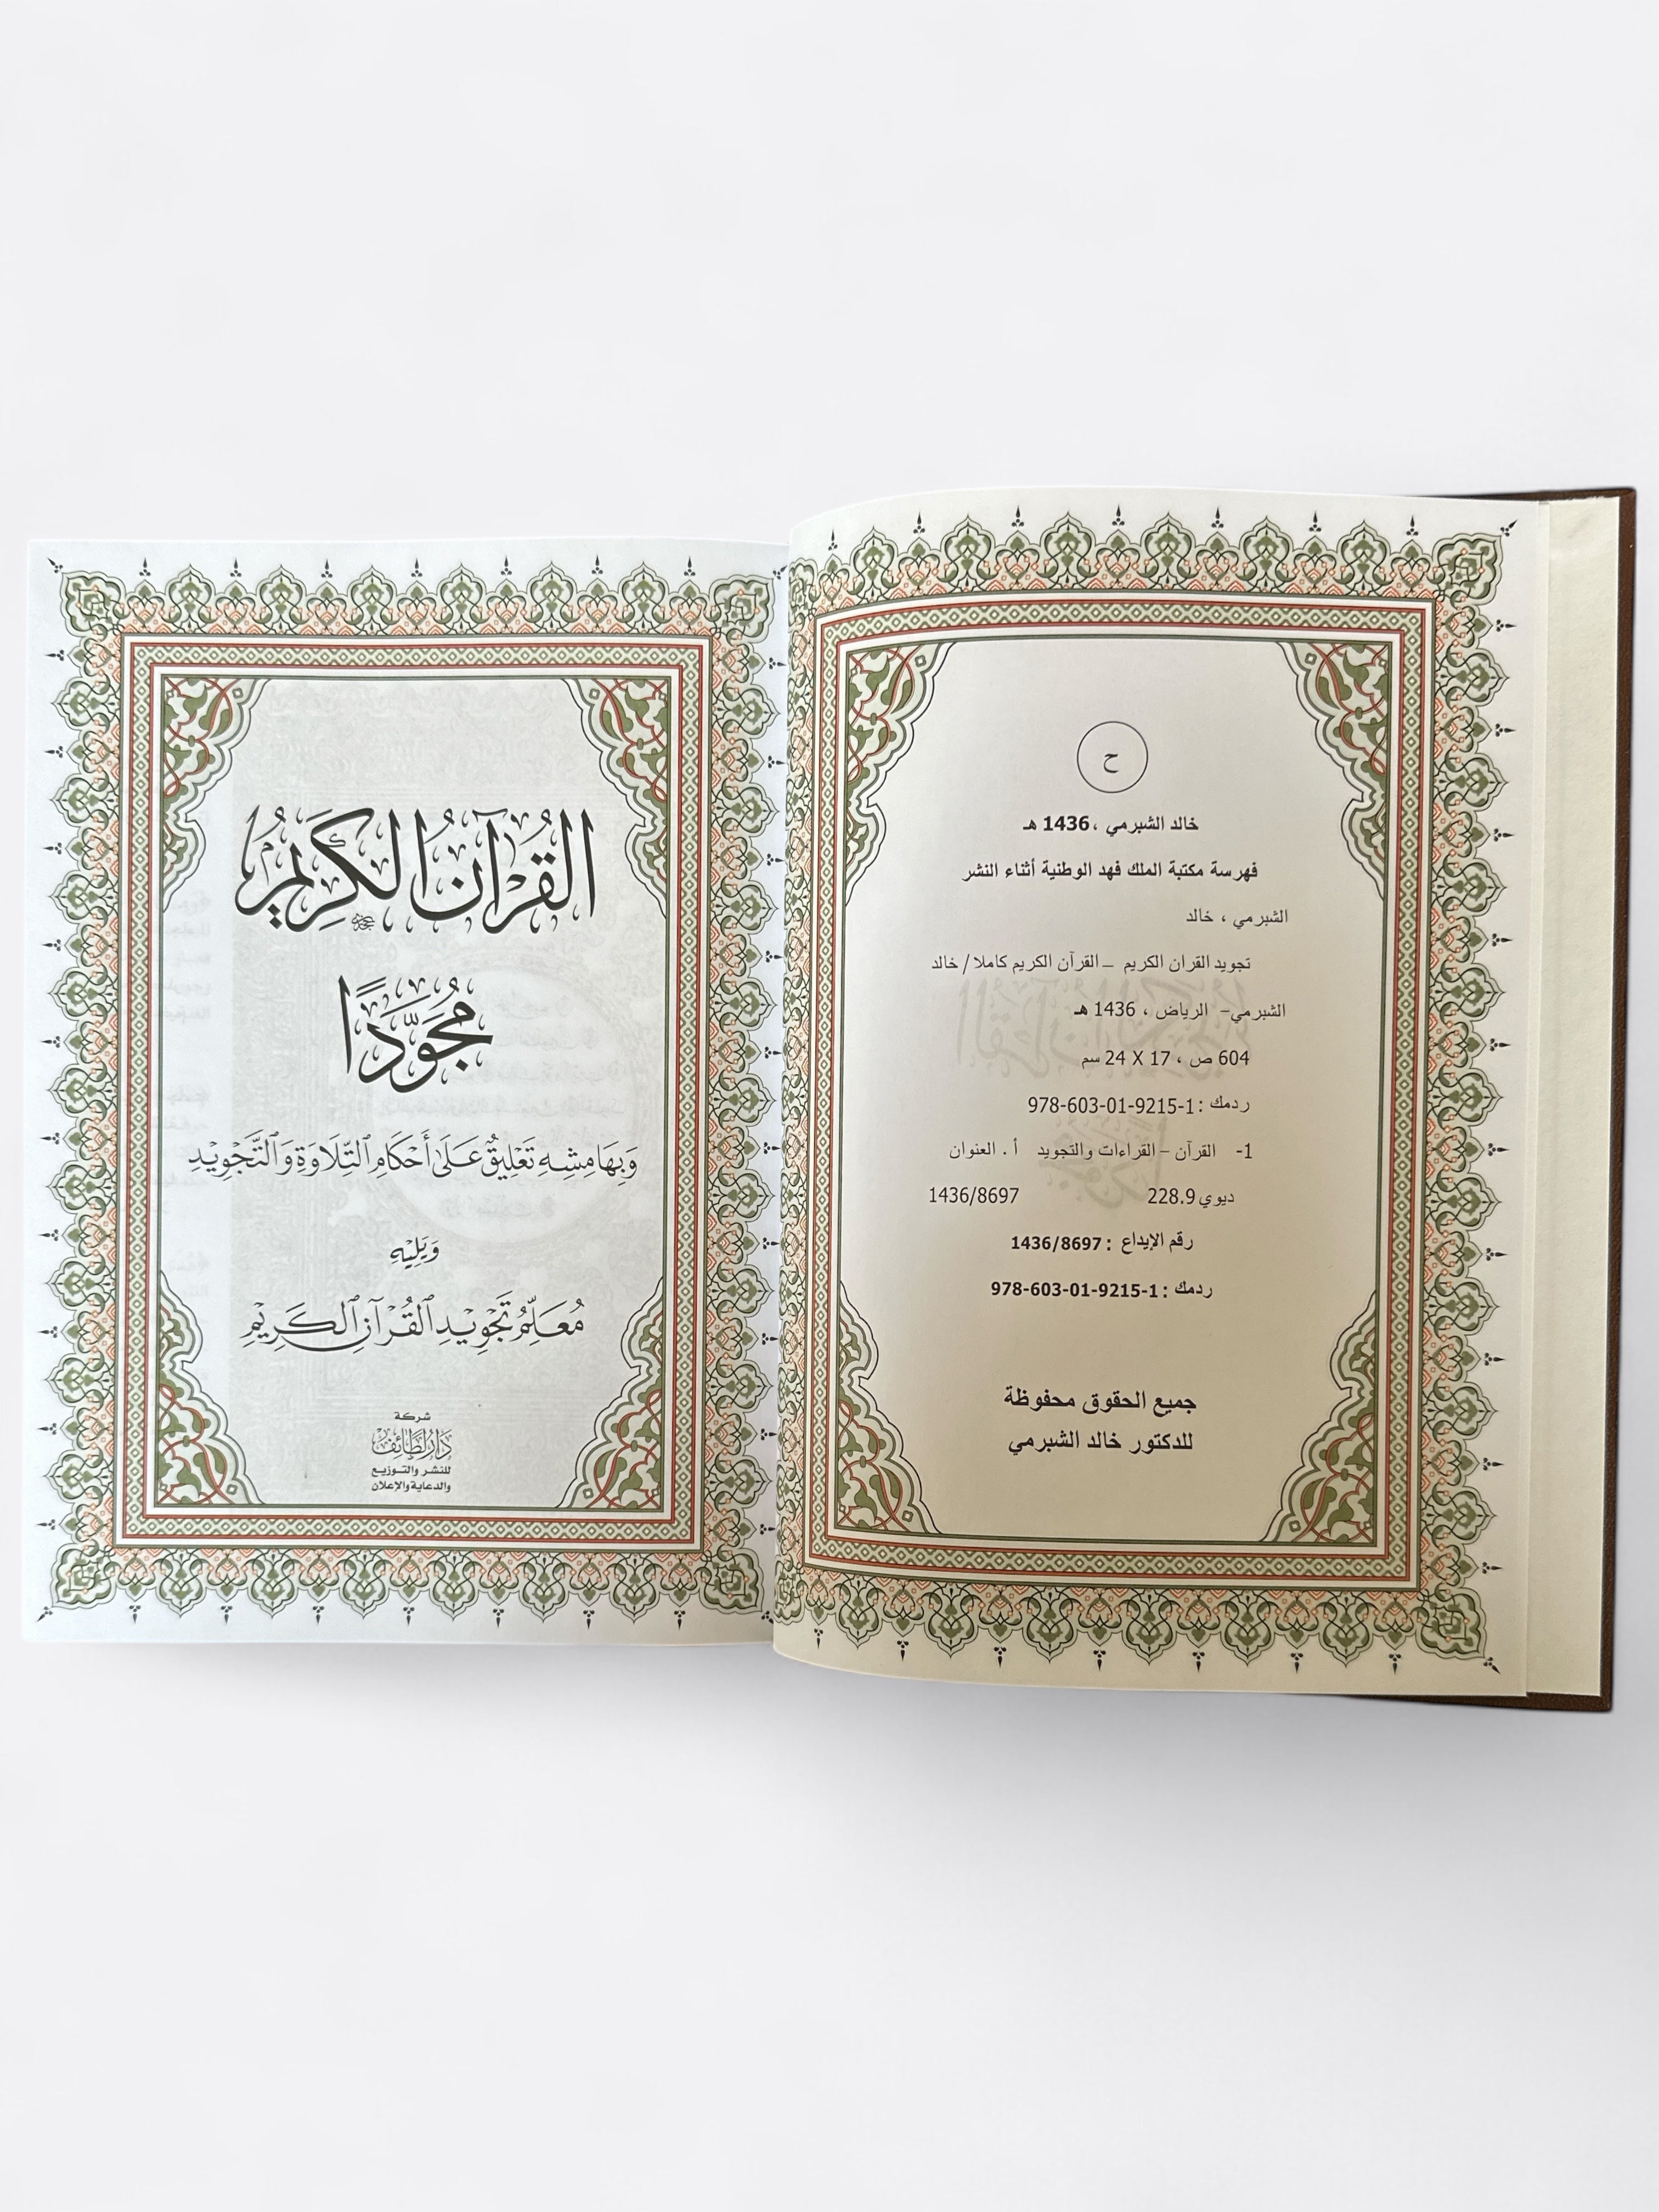 ح
خالد الشبرمي ، 1436 هـ
فهرسة مكتبة الملك فهد الوطنية أثناء النشر
الشبرمي ، خالد
تجويد القران الكريم – القرآن الكريم كاملا / خالد
الشبرمي- الرياض ، 1436 هـ
604 ص ، 17 X 24 سم
ردمك : 1-9215-01-603-978
1- القرآن – القراءات والتجويد أ . العنوان
ديوي 228.9 1436/8697
رقم الإيداع : 1436/8697
ردمك : 1-9215-01-603-978
جميع الحقوق محفوظة
للدكتور خالد الشبرمي
القُرآنُ الكَرِيمُ
مُجَوَّدًا
وَبِهَامِشِهِ تَعْلِيقٌ عَلَىٰ أَحْكَامِ ٱلتِّلَاوَةِ وَٱلتَّجْوِيدِ
وَيَلِيْهِ
مُعَلِّمُ تَجْوِيدِ ٱلْقُرْآنِ ٱلْكَرِيْمِ
شركة
دار لطائف
للنشر والتوزيع
والدعاية والإعلان